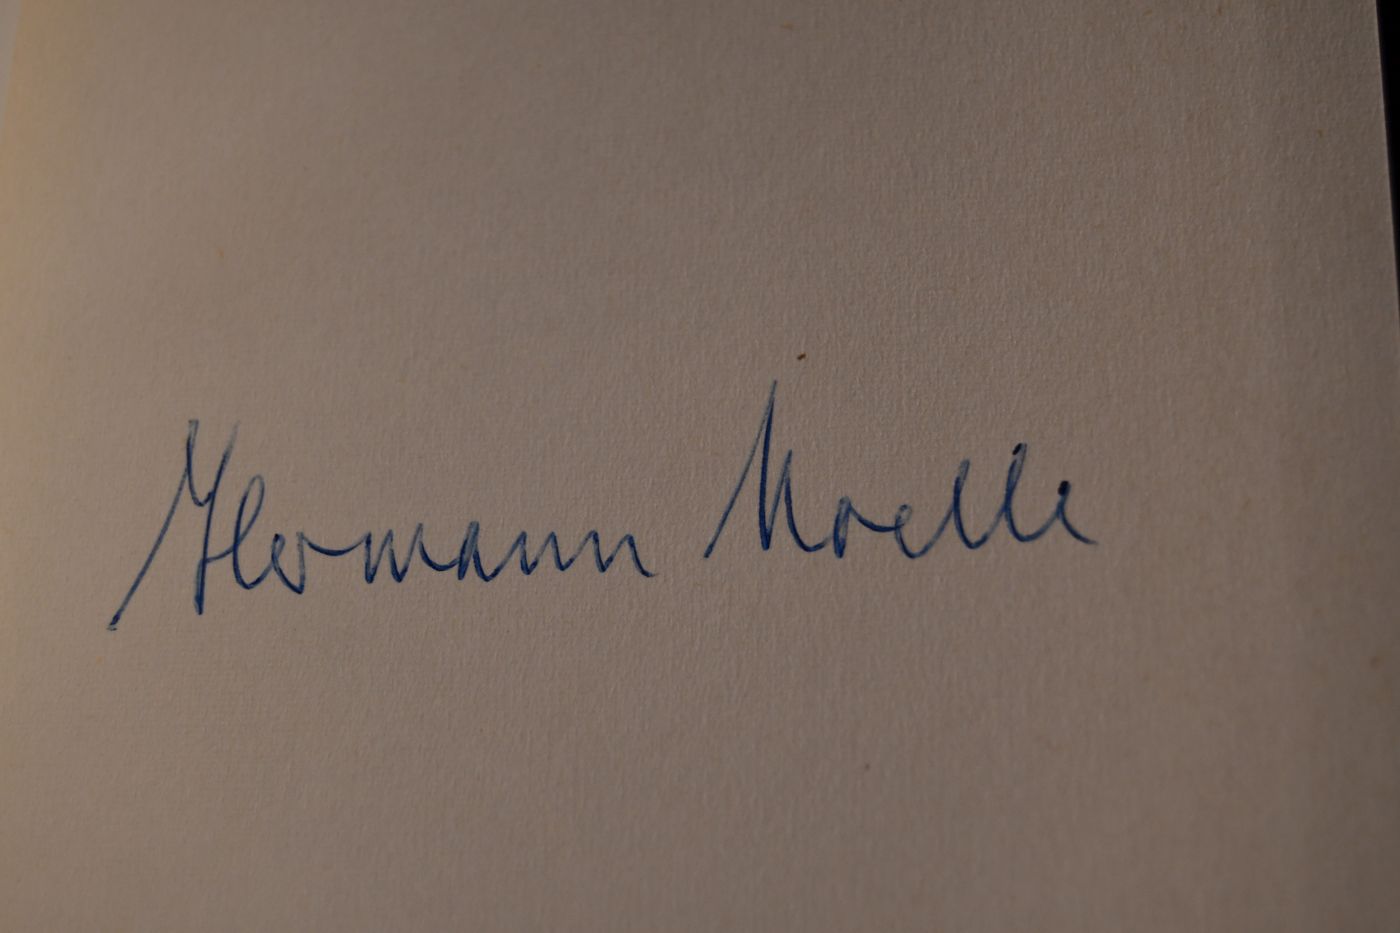 Hermann Noelle